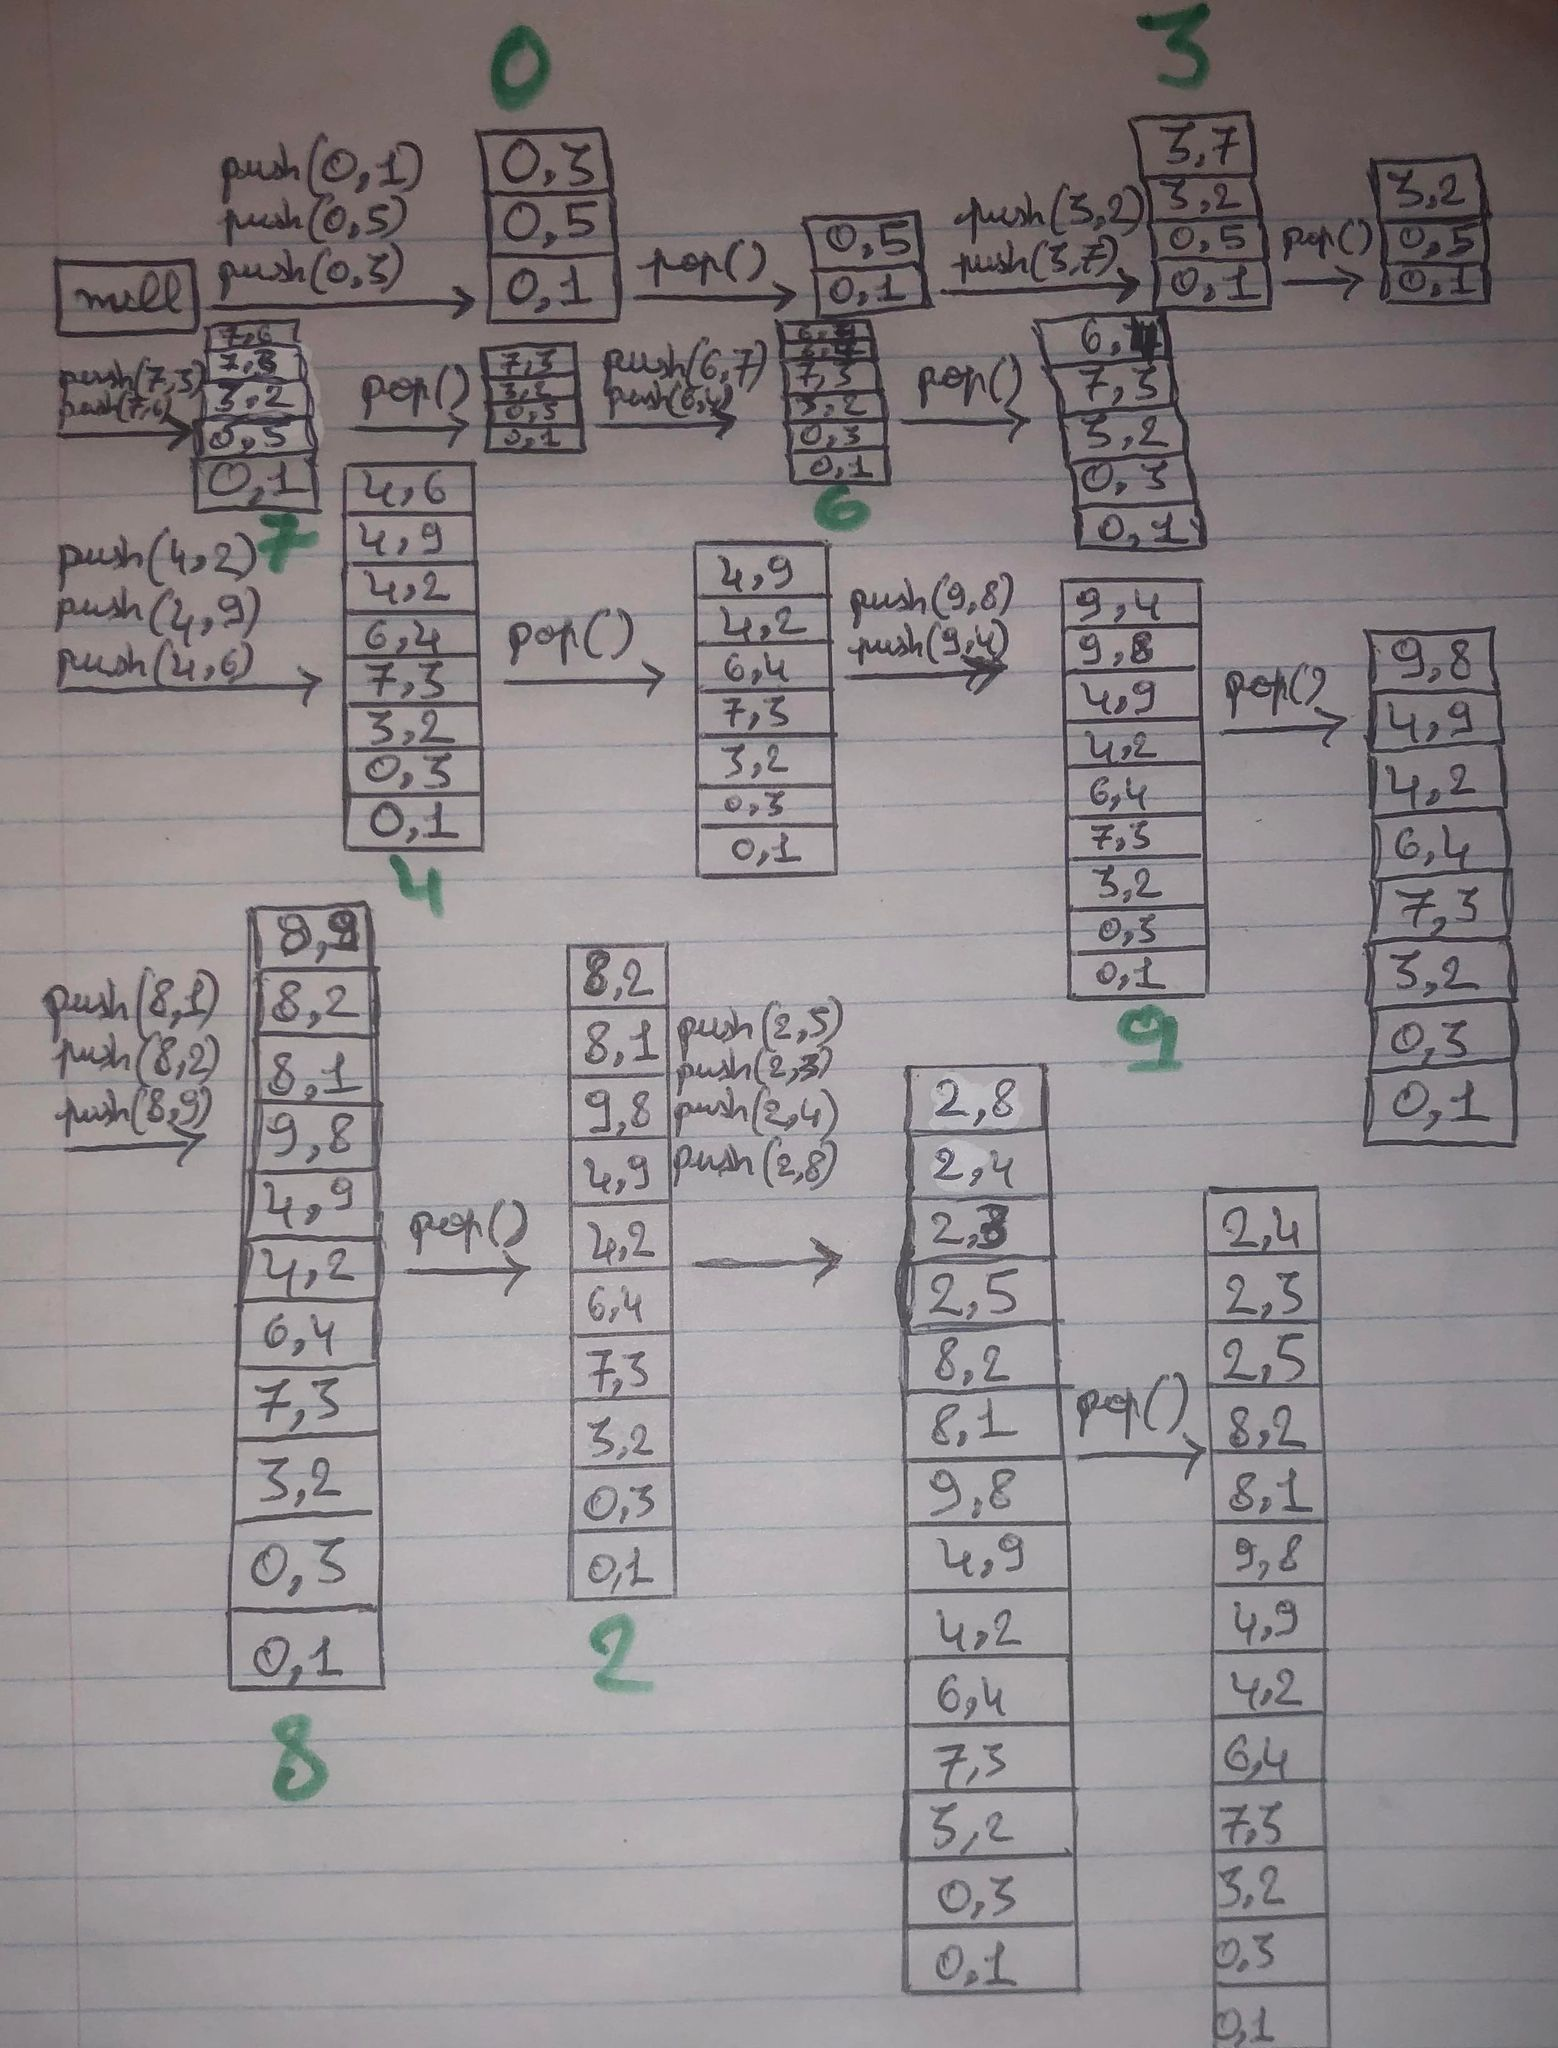 0
3
push(0,1)
push(0,5)
push(0,3)
null
0,3
0,5
0,1
pop()
0,5
0,1
push(3,2)
push(3,7)
3,7
3,2
0,5
0,1
pop()
3,2
0,5
0,1
push(7,3)
push(7,6)
7,6
7,3
3,2
0,5
0,1
7
pop()
7,3
3,2
0,5
0,1
push(6,7)
push(6,4)
7,3
3,2
0,3
0,1
6
pop()
6,4
7,3
3,2
0,3
0,1
push(4,2)
push(4,9)
push(4,6)
4,6
4,9
4,2
6,4
7,3
3,2
0,3
0,1
4
pop()
4,9
4,2
6,4
7,3
3,2
0,3
0,1
push(9,8)
push(9,4)
9,4
9,8
4,9
4,2
6,4
7,3
3,2
0,3
0,1
9
pop()
9,8
4,9
4,2
6,4
7,3
3,2
0,3
0,1
push(8,1)
push(8,2)
push(8,9)
8,9
8,2
8,1
9,8
4,9
4,2
6,4
7,3
3,2
0,3
0,1
8
pop()
8,2
8,1
9,8
4,9
4,2
6,4
7,3
3,2
0,3
0,1
2
push(2,5)
push(2,3)
push(2,4)
push(2,8)
2,8
2,4
2,3
2,5
8,2
8,1
9,8
4,9
4,2
6,4
7,3
3,2
0,3
0,1
pop()
2,4
2,3
2,5
8,2
8,1
9,8
4,9
4,2
6,4
7,3
3,2
0,3
0,1